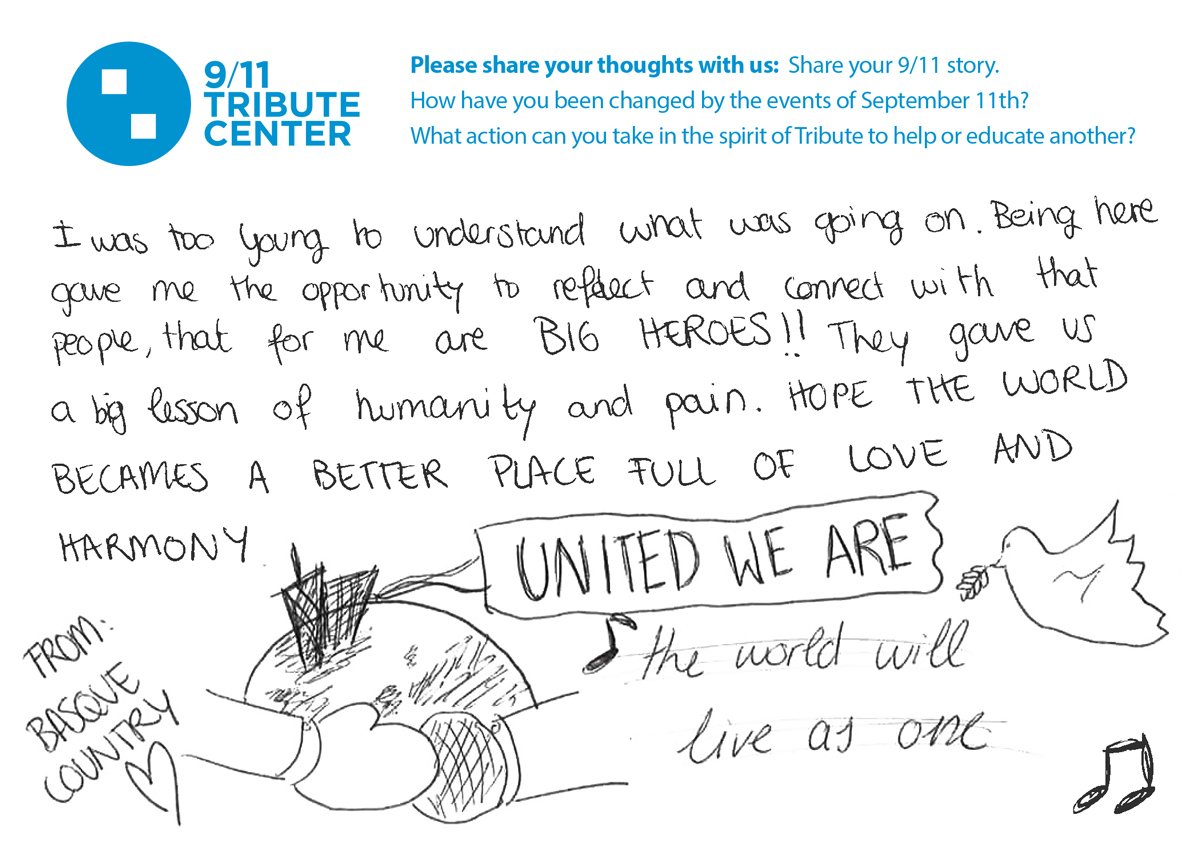 9/11
TRIBUTE
CENTER
Please share your thoughts with us: Share your 9/11 story.
How have you been changed by the events of September 11th?
What action can you take in the spirit of Tribute to help or educate another?
I was too young to understand what was going on. Being here
gave me the opportunity to reflect and connect with that
people, that for me are BIG HEROES!! They gave us
a big lesson of humanity and pain. HOPE THE WORLD
BECAMES A BETTER PLACE FULL OF LOVE AND
HARMONY
UNITED WE ARE
the world will
live as one
FROM:
BASQUE
COUNTRY